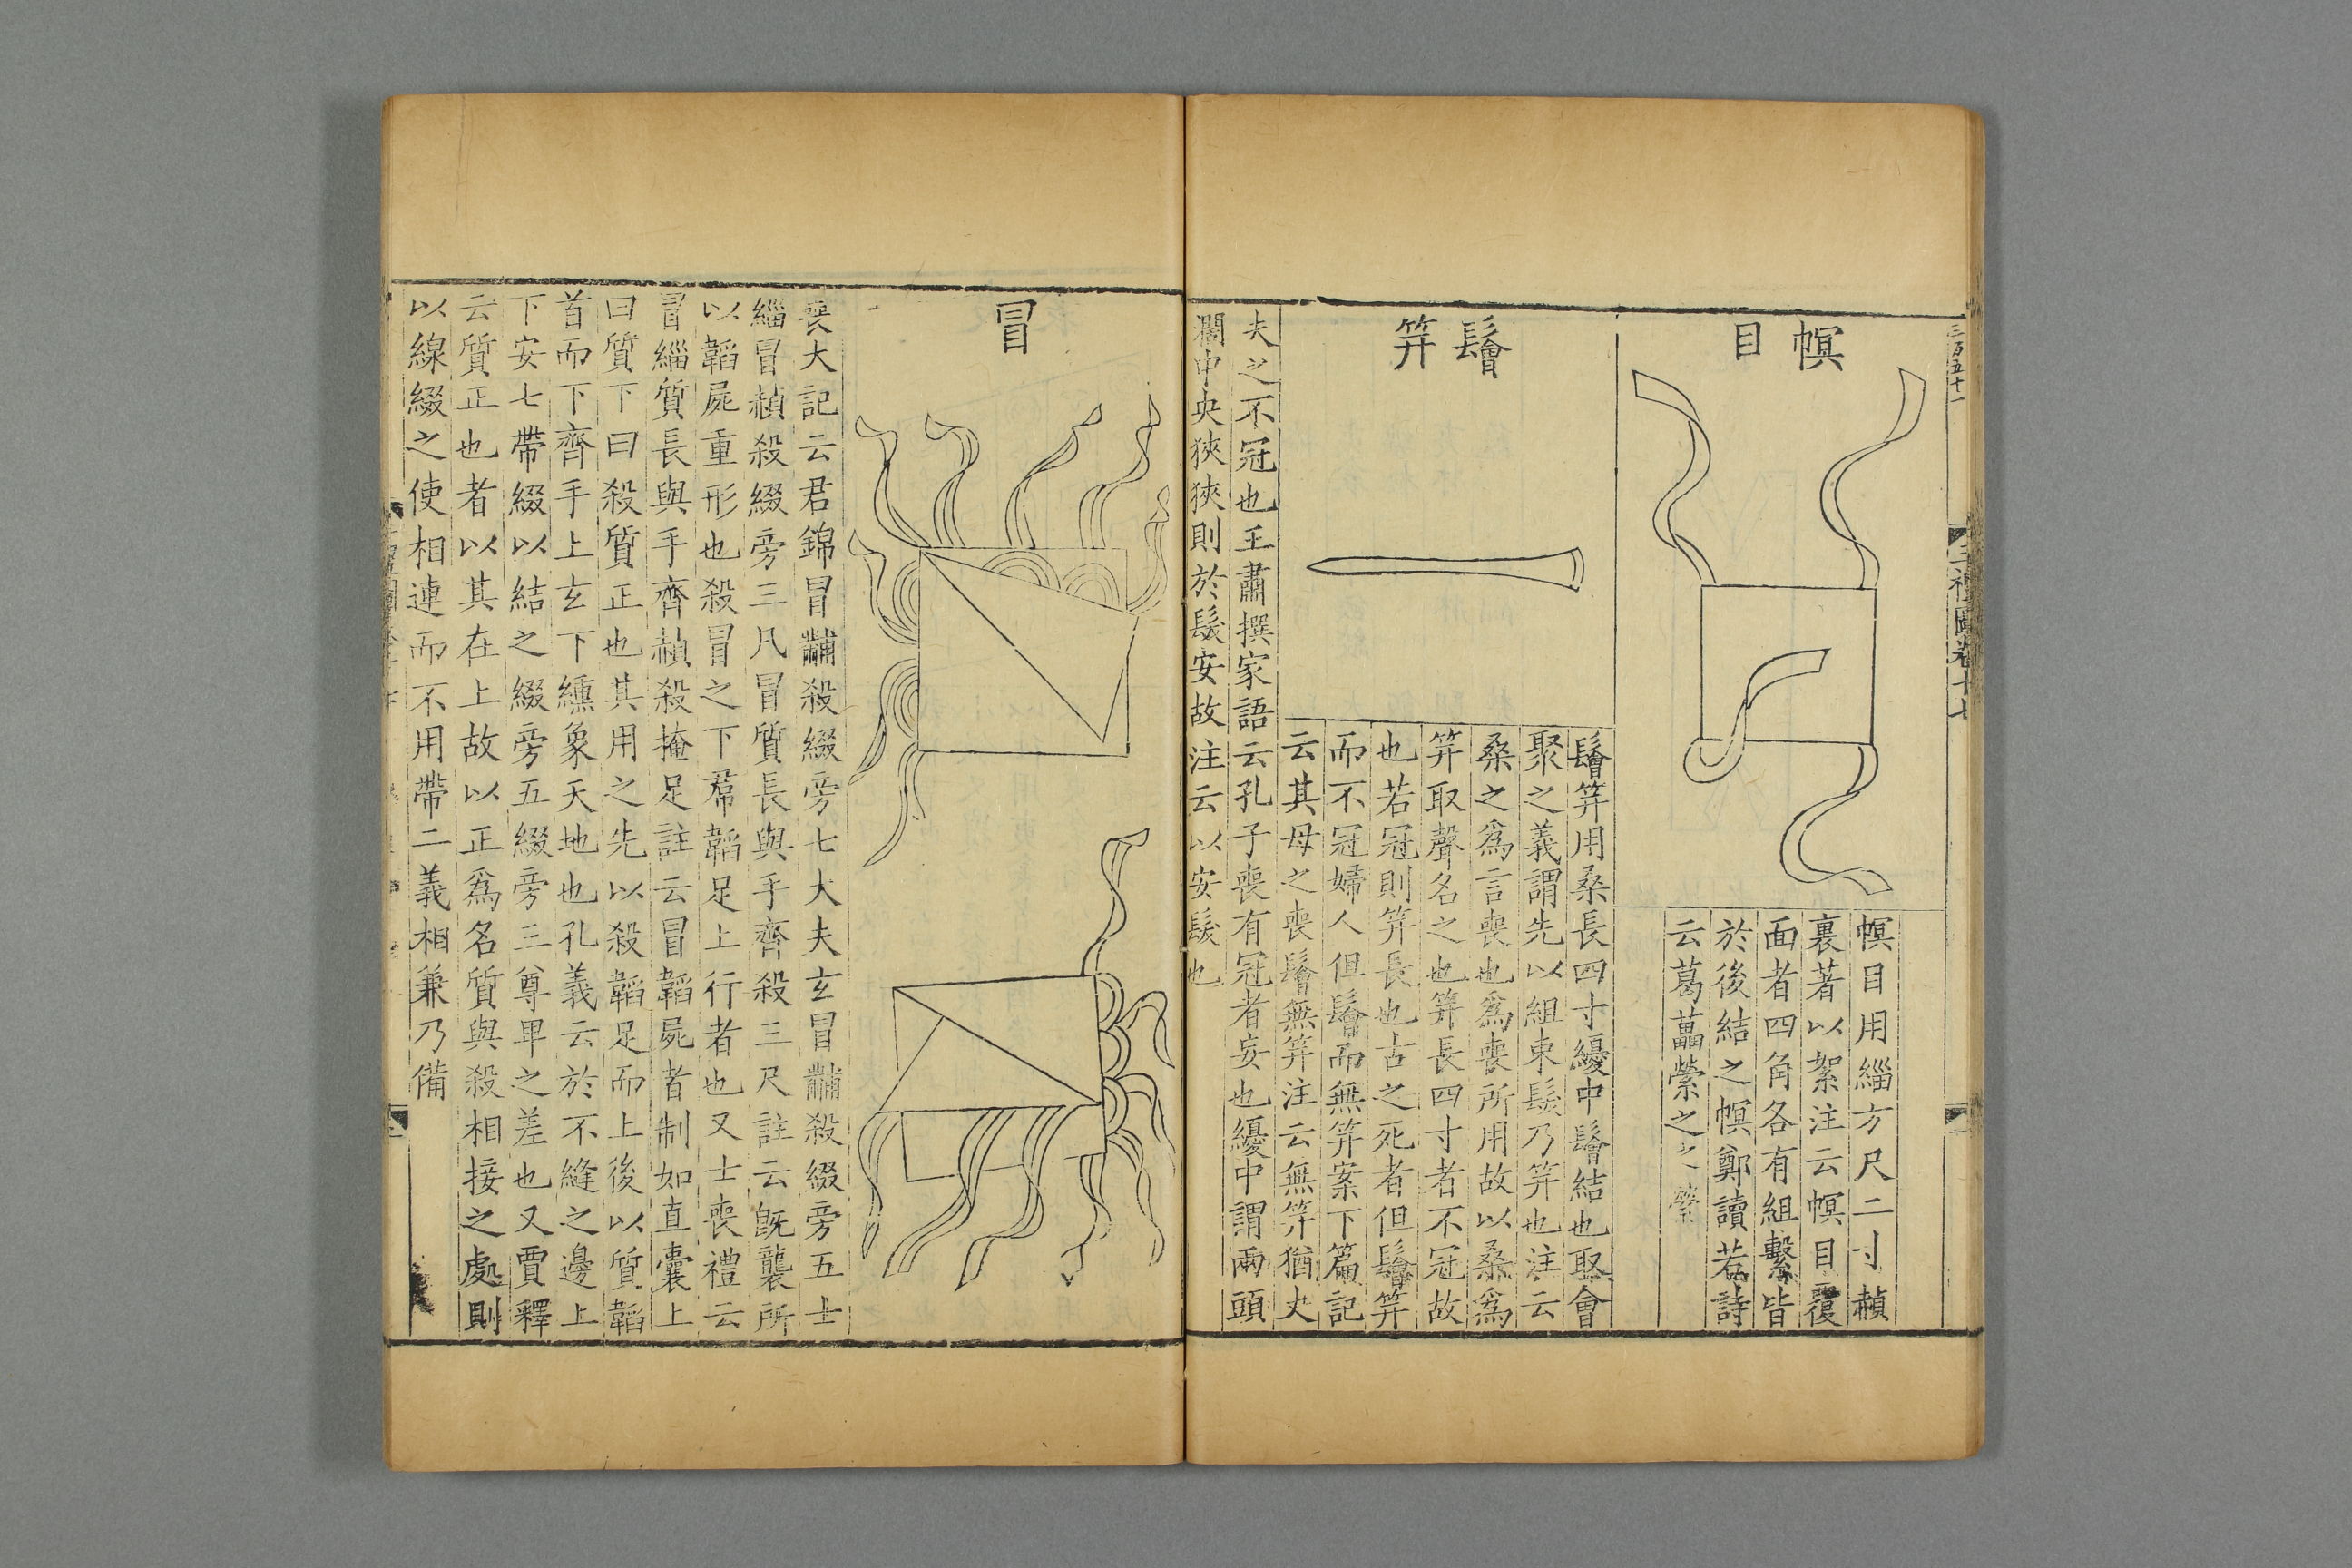 三百五十一
三禮圖卷十七
幎目
幎目用緇方尺二寸赬
裏著以絮注云幎目覆
面者四角各有組繫皆
於後結之幎鄭讀若詩
云葛藟縈之之縈
鬠笄
鬠笄用桑長四寸纋中鬠結也取會
聚之義謂先以組束髮乃笄也注云
桑之為言喪也為喪所用故以桑為
笄取聲名之也笄長四寸者不冠故
也若冠則笄長也古之死者但鬠笄
而不冠婦人但鬠而無笄案下篇記
云其母之喪鬠無笄注云無笄猶丈
夫之不冠也王肅撰家語云孔子喪有冠者妄也纋中謂兩頭
濶中央狹狹則於髮安故注云以安髮也
冒
喪大記云君錦冒黼殺綴旁七大夫玄冒黼殺綴旁五士
緇冒赬殺綴旁三凡冒質長與手齊殺三尺註云旣襲所
以韜屍重形也殺冒之下帬韜足上行者也又士喪禮云
冒緇質長與手齊赬殺掩足註云冒韜屍者制如直囊上
曰質下曰殺質正也其用之先以殺韜足而上後以質韜
首而下齊手上玄下纁象天地也孔義云於不縫之邊上
下安七帶綴以結之綴旁五綴旁三尊卑之差也又賈釋
云質正也者以其在上故以正為名質與殺相接之處則
以線綴之使相連而不用帶二義相兼乃備